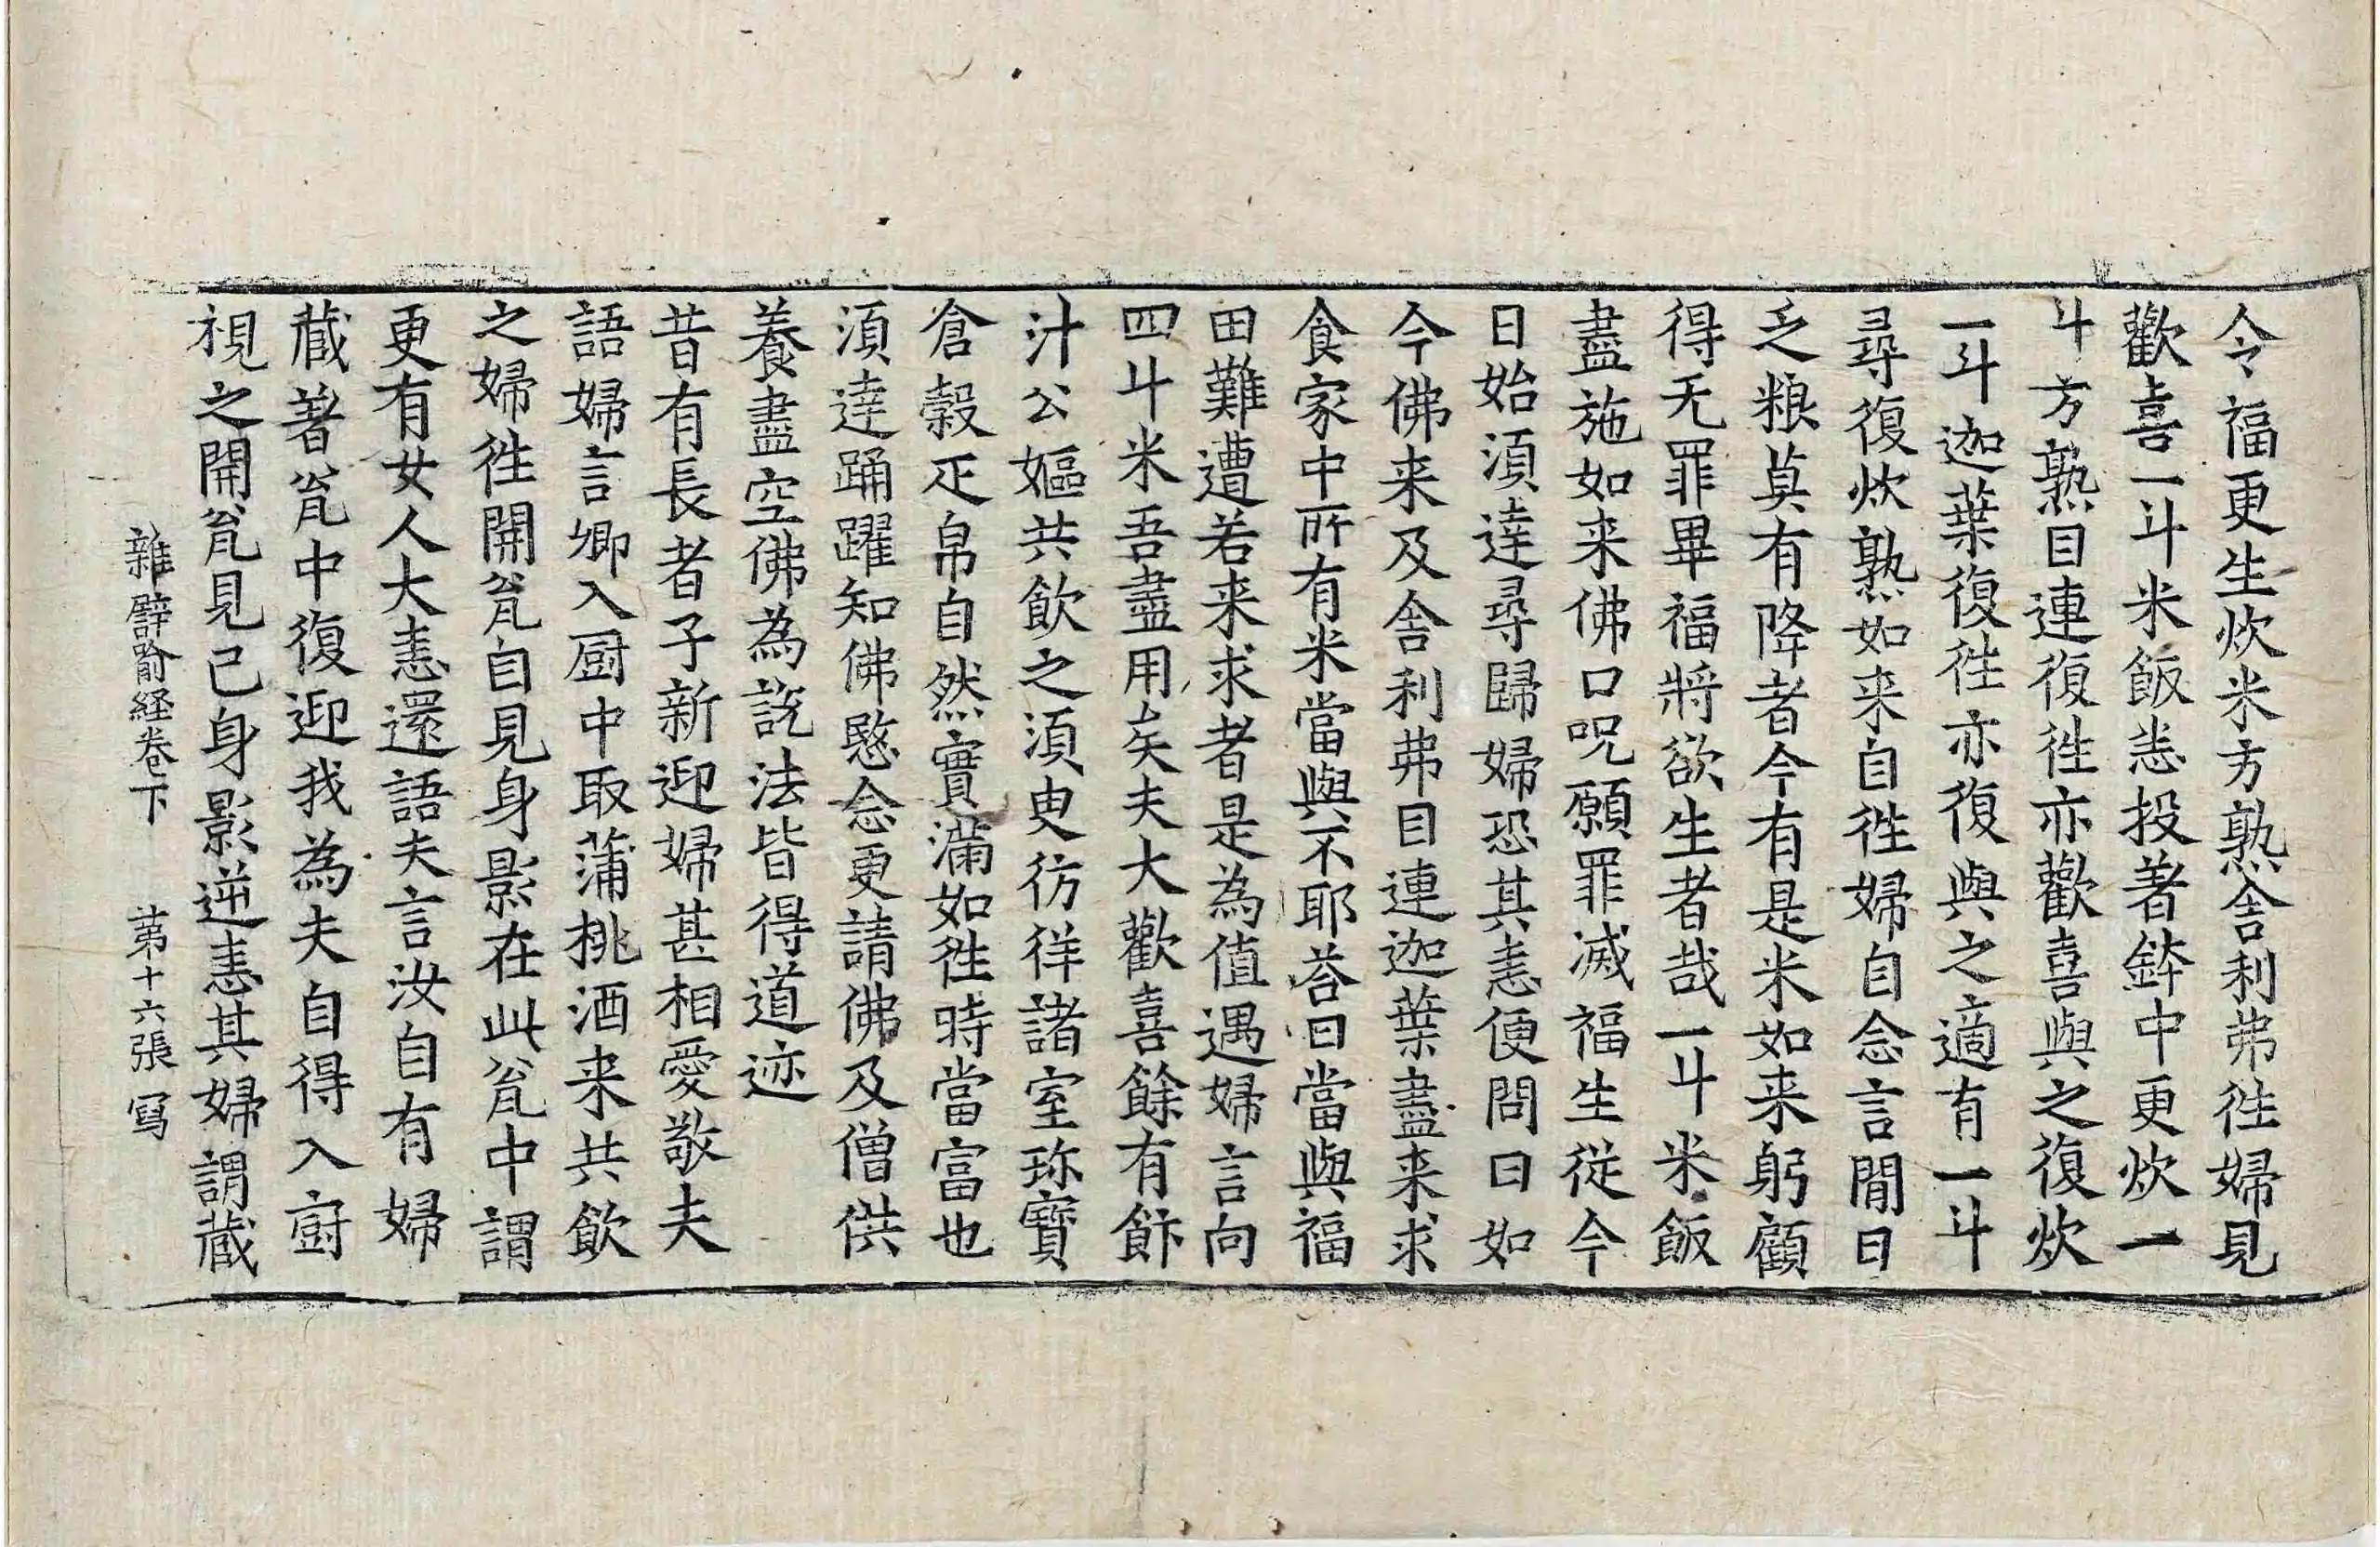 令福更生炊米方熟舍利弗徃婦見
歡喜一斗米飯恙投著鉢中更炊一
斗方熟目連復徃亦歡喜與之復炊
一斗迦葉復徃亦復與之適有一斗
尋復炊熟如来自徃婦自念言閒日
乏粮莫有降者今有是米如来躬顧
得无罪畢福將欲生者哉一斗米飯
盡施如来佛口呪願罪滅福生從今
日始湏逹尋歸婦恐其恚便問曰如
今佛来及舍利弗目連迦葉盡来求
食家中所有米當與不耶荅曰當與福
田難遭若来求者是為值遇婦言向
四斗米吾盡用矣夫大歡喜餘有飰
汁公嫗共飲之湏臾彷徉諸室珎寶
倉穀疋帛自然實滿如徃時當富也
湏逹踊躍知佛愍念更請佛及僧供
養盡空佛為說法皆得道迹
昔有長者子新迎婦甚相愛敬夫
語婦言卿入厨中取蒲桃酒来共飲
之婦徃開瓮自見身影在此瓮中謂
更有女人大恚還語夫言汝自有婦
藏著瓮中復迎我為夫自得入廚
視之開瓮見己身影逆恚其婦謂藏
雜譬喻経卷下　第十六張　冩